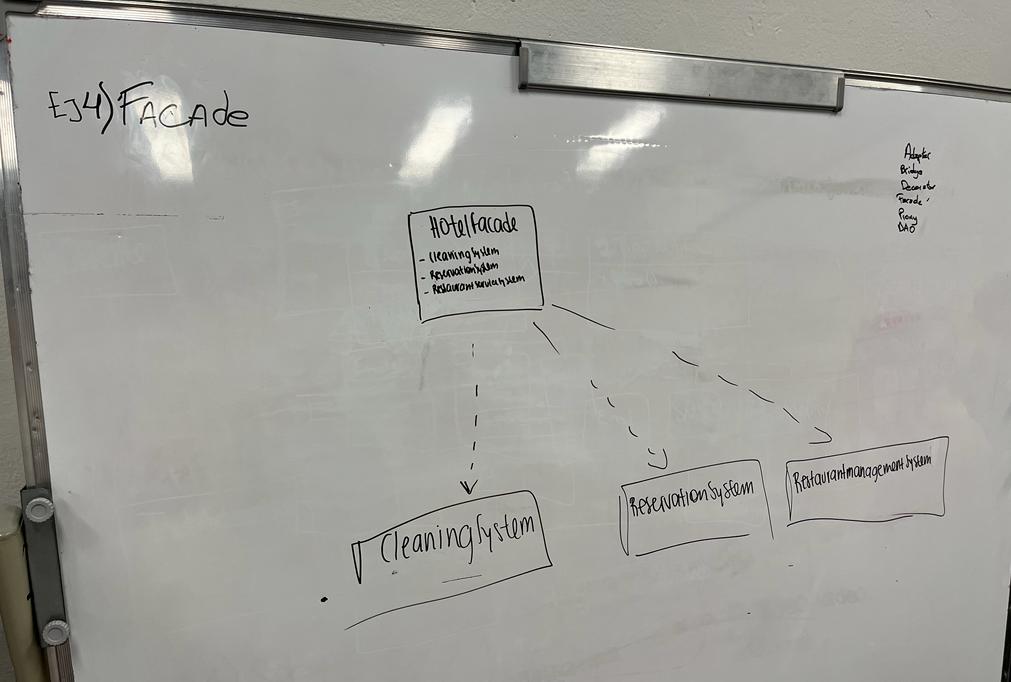 Ej4) FACAde
Adapter
Bridge
Decorator
Facade
Proxy
DAO
HotelFacade
- CleaningSystem
- ReservationSystem
- RestaurantserviceSystem
CleaningSystem
ReservationSystem
RestaurantmanagementSystem